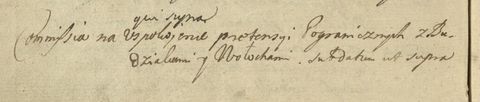 qui supra
Commissia na Uspokojenie pretensyi Pogranicznych z Bu-
dziakami y Wołochami. sub Datum ut supra